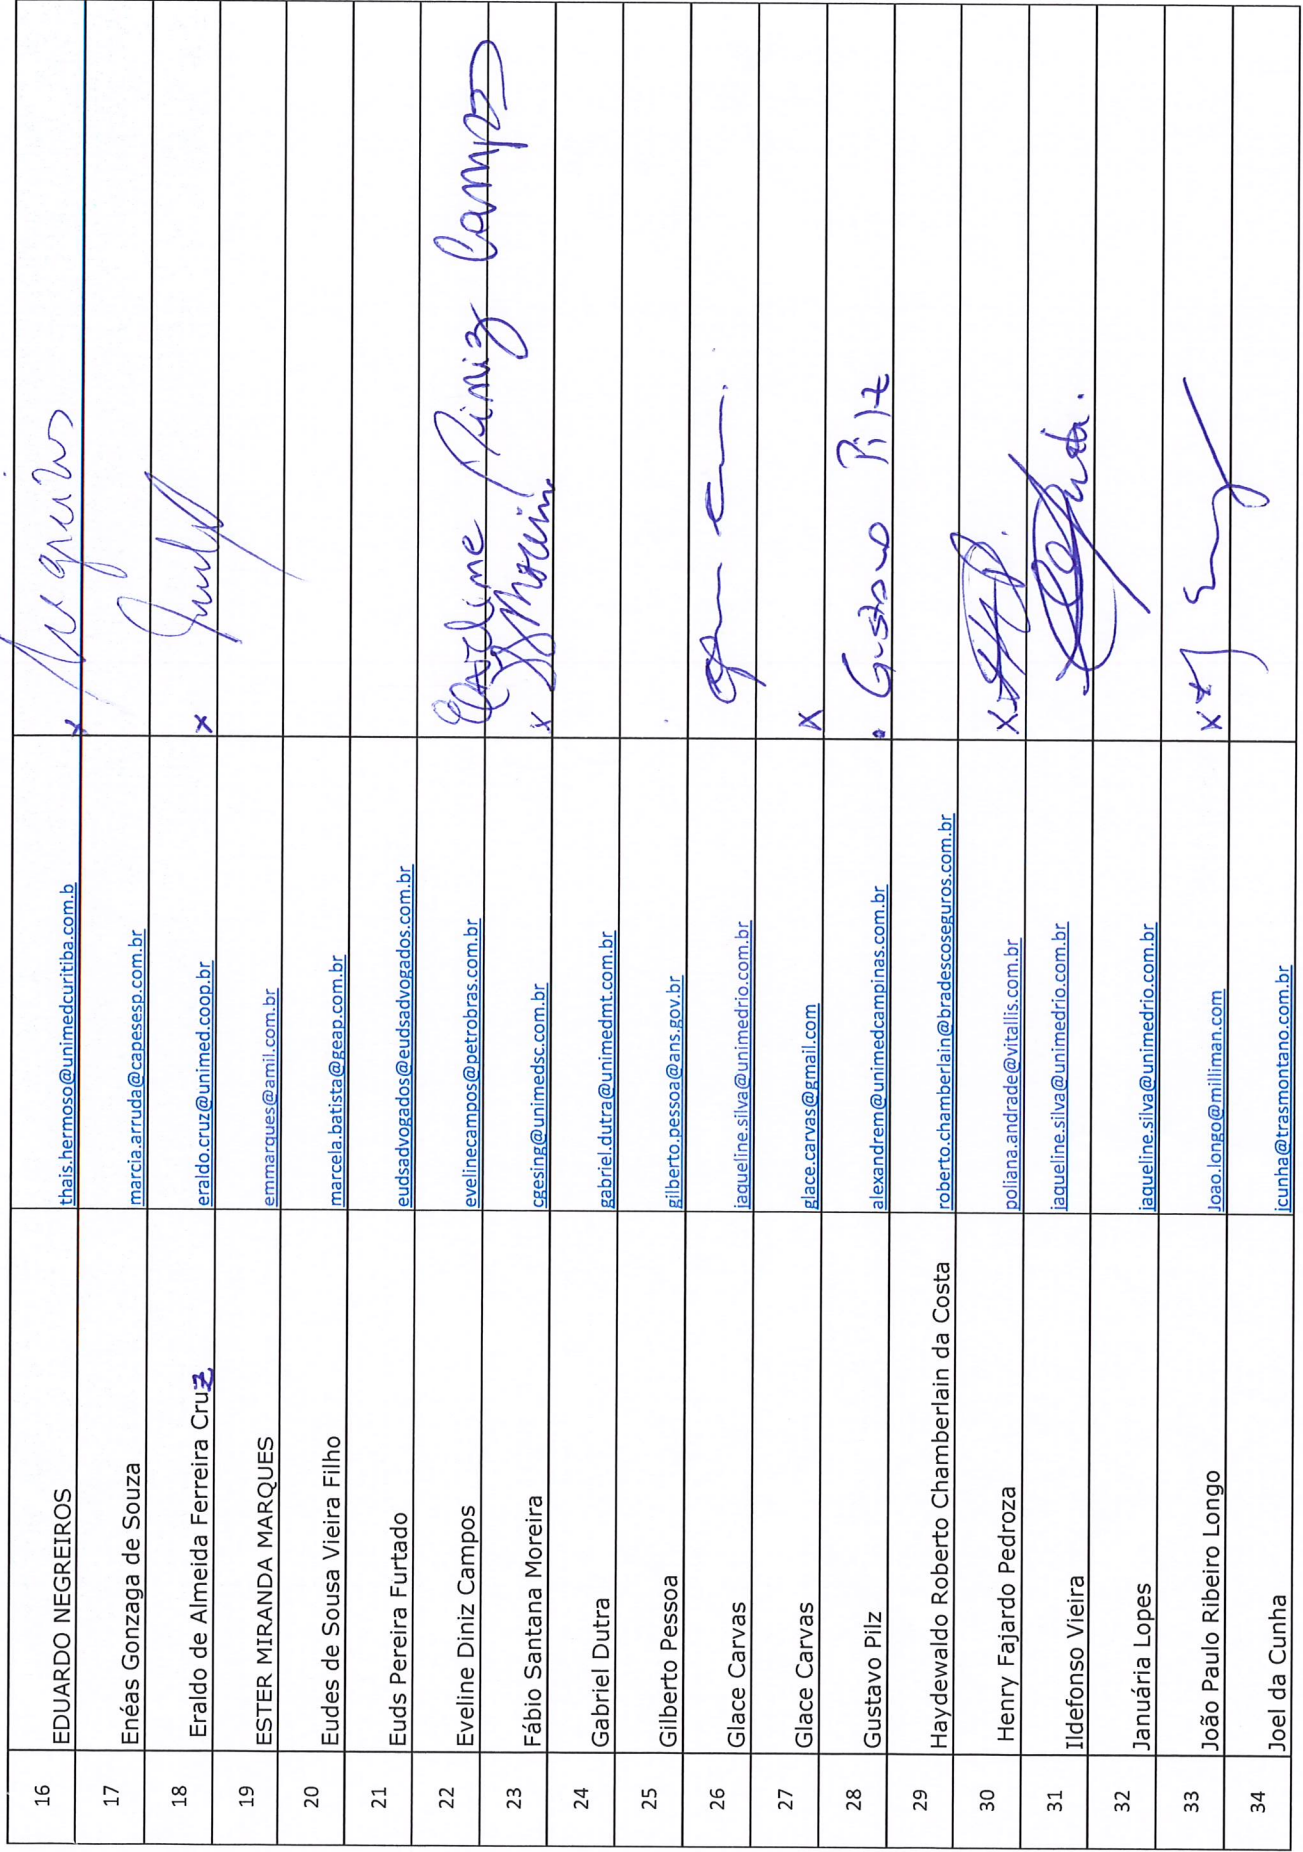 16 EDUARDO NEGREIROS thais.hermoso@unimedcuritiba.com.b x Negreiros
17 Enéas Gonzaga de Souza marcia.arruda@capesesp.com.br
18 Eraldo de Almeida Ferreira Cruz eraldo.cruz@unimed.coop.br x
19 ESTER MIRANDA MARQUES emmarques@amil.com.br
20 Eudes de Sousa Vieira Filho marcela.batista@geap.com.br
21 Euds Pereira Furtado eudsadvogados@eudsadvogados.com.br
22 Eveline Diniz Campos evelinecampos@petrobras.com.br Eveline Diniz Campos
23 Fábio Santana Moreira cgesing@unimedsc.com.br x
24 Gabriel Dutra gabriel.dutra@unimedmt.com.br
25 Gilberto Pessoa gilberto.pessoa@ans.gov.br
26 Glace Carvas jaqueline.silva@unimedrio.com.br
27 Glace Carvas glace.carvas@gmail.com x
28 Gustavo Pilz alexandrem@unimedcampinas.com.br Gustavo Pilz
29 Haydewaldo Roberto Chamberlain da Costa roberto.chamberlain@bradescoseguros.com.br
30 Henry Fajardo Pedroza poliana.andrade@vitallis.com.br x
31 Ildefonso Vieira jaqueline.silva@unimedrio.com.br
32 Januária Lopes jaqueline.silva@unimedrio.com.br
33 João Paulo Ribeiro Longo Joao.longo@milliman.com x
34 Joel da Cunha jcunha@trasmontano.com.br